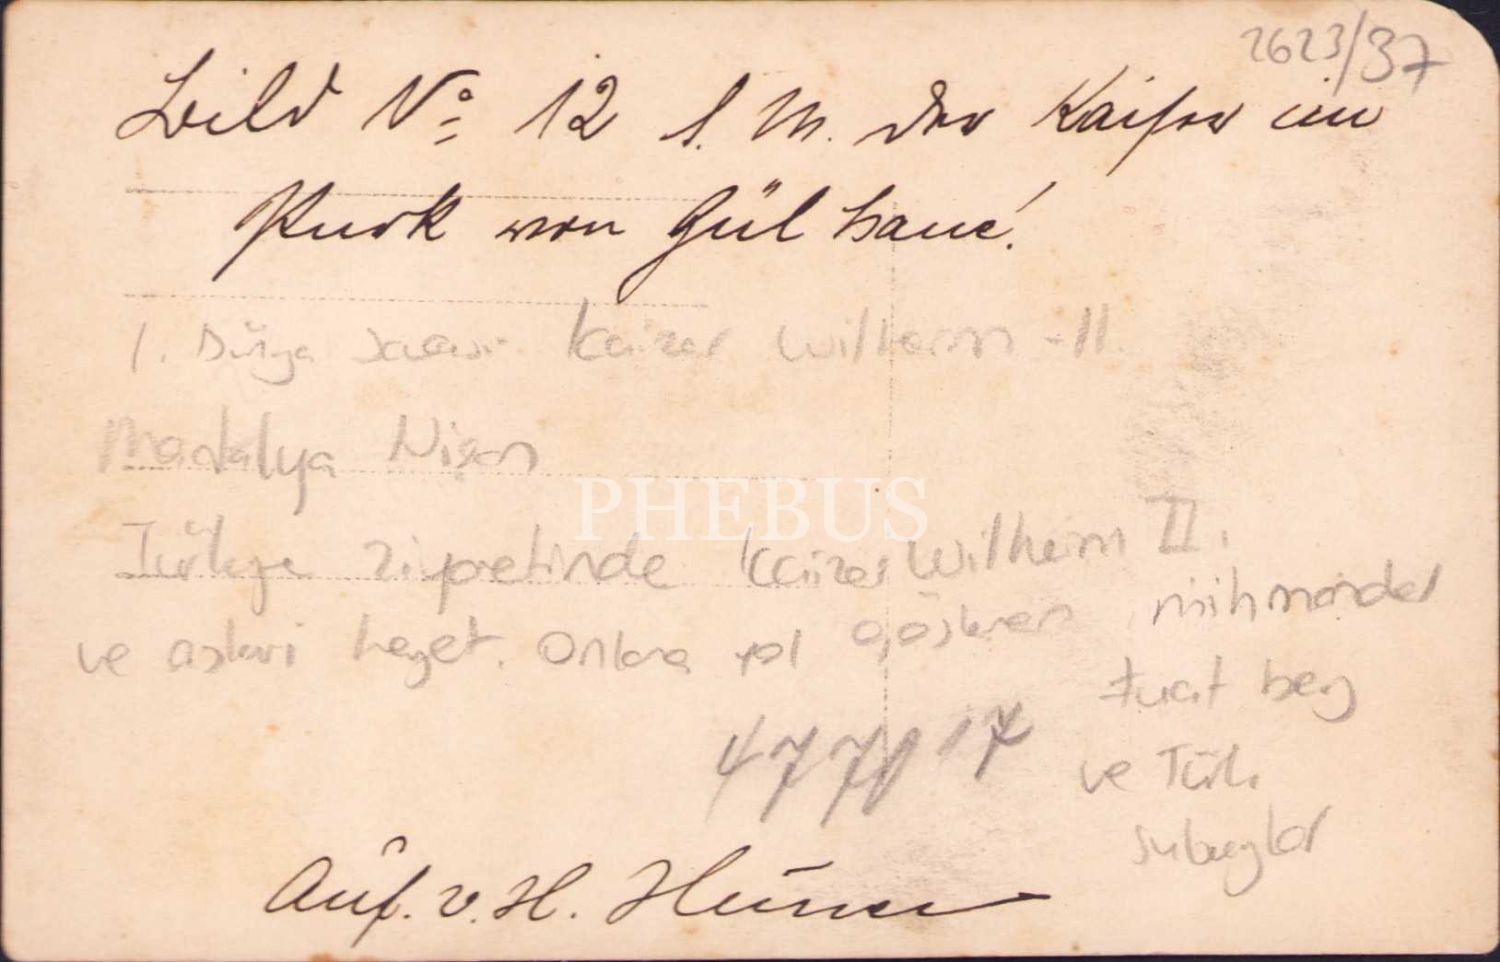 2623/37
Bild No 12 S. M. der Kaiser im
Park von Gül hané!
1. Dünya Savaşı. Kaizer Wilhelm -II
Madalya Nişan
PHEBUS
Türkiye ziyaretinde Kaizer Wilheim II.
ve askeri heyet. Onlara yol gösteren mihmandar
Fuat bey
ve Türk
subaylar
Auf. v. H.